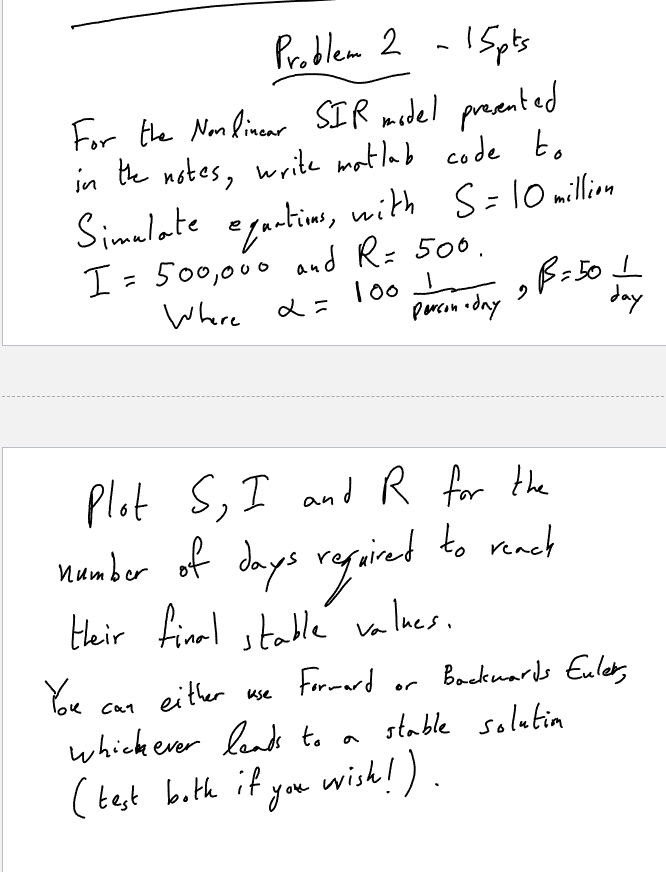 Problem 2 - 15pts
For the Nonlinear SIR model presented
in the notes, write matlab code to
Simulate equations, with S = 10 million
I = 500,000 and R = 500.
Where α = 100 1/person·day, β = 50 1/day
Plot S, I and R for the
number of days required to reach
their final stable values.
You can either use Forward or Backwards Euler,
whichever leads to a stable solution
(test both if you wish!).